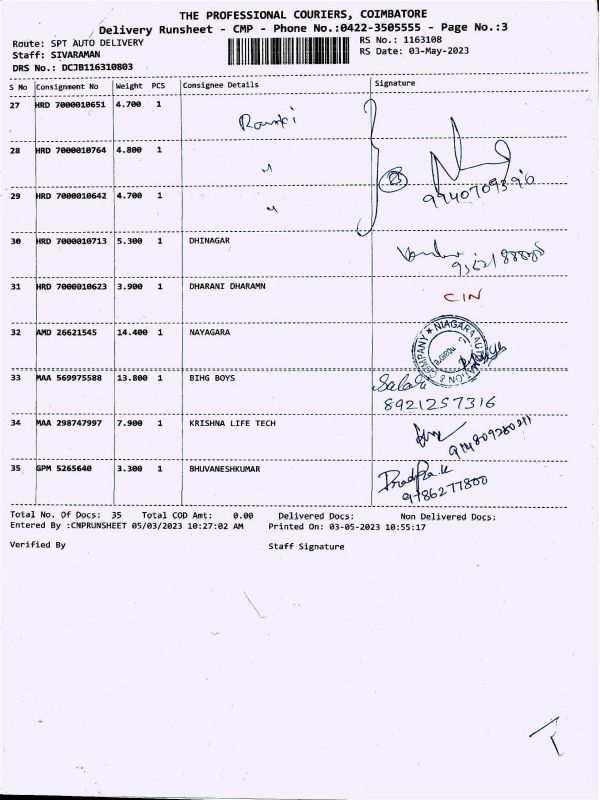 THE PROFESSIONAL COURIERS, COIMBATORE
Delivery Runsheet - CMP - Phone No.:0422-3505555 - Page No.:3
Route: SPT AUTO DELIVERY
RS No.: 1163108
Staff: SIVARAMAN
RS Date: 03-May-2023
DRS No.: DCJB116310803
S No Consignment No Weight PCS Consignee Details Signature
27 HRD 7000010651 4.700 1
28 HRD 7000010764 4.800 1
29 HRD 7000010642 4.700 1
30 HRD 7000010713 5.300 1 DHINAGAR
31 HRD 7000010623 3.900 1 DHARANI DHARAMN
CIN
32 AMD 26621545 14.400 1 NAYAGARA
33 MAA 569975588 13.800 1 BIHG BOYS
8921257316
34 MAA 298747997 7.900 1 KRISHNA LIFE TECH
35 GPM 5265640 3.300 1 BHUVANESHKUMAR
9786277800
Total No. Of Docs: 35 Total COD Amt: 0.00 Delivered Docs: Non Delivered Docs:
Entered By :CNPRUNSHEET 05/03/2023 10:27:02 AM Printed On: 03-05-2023 10:55:17
Verified By Staff Signature